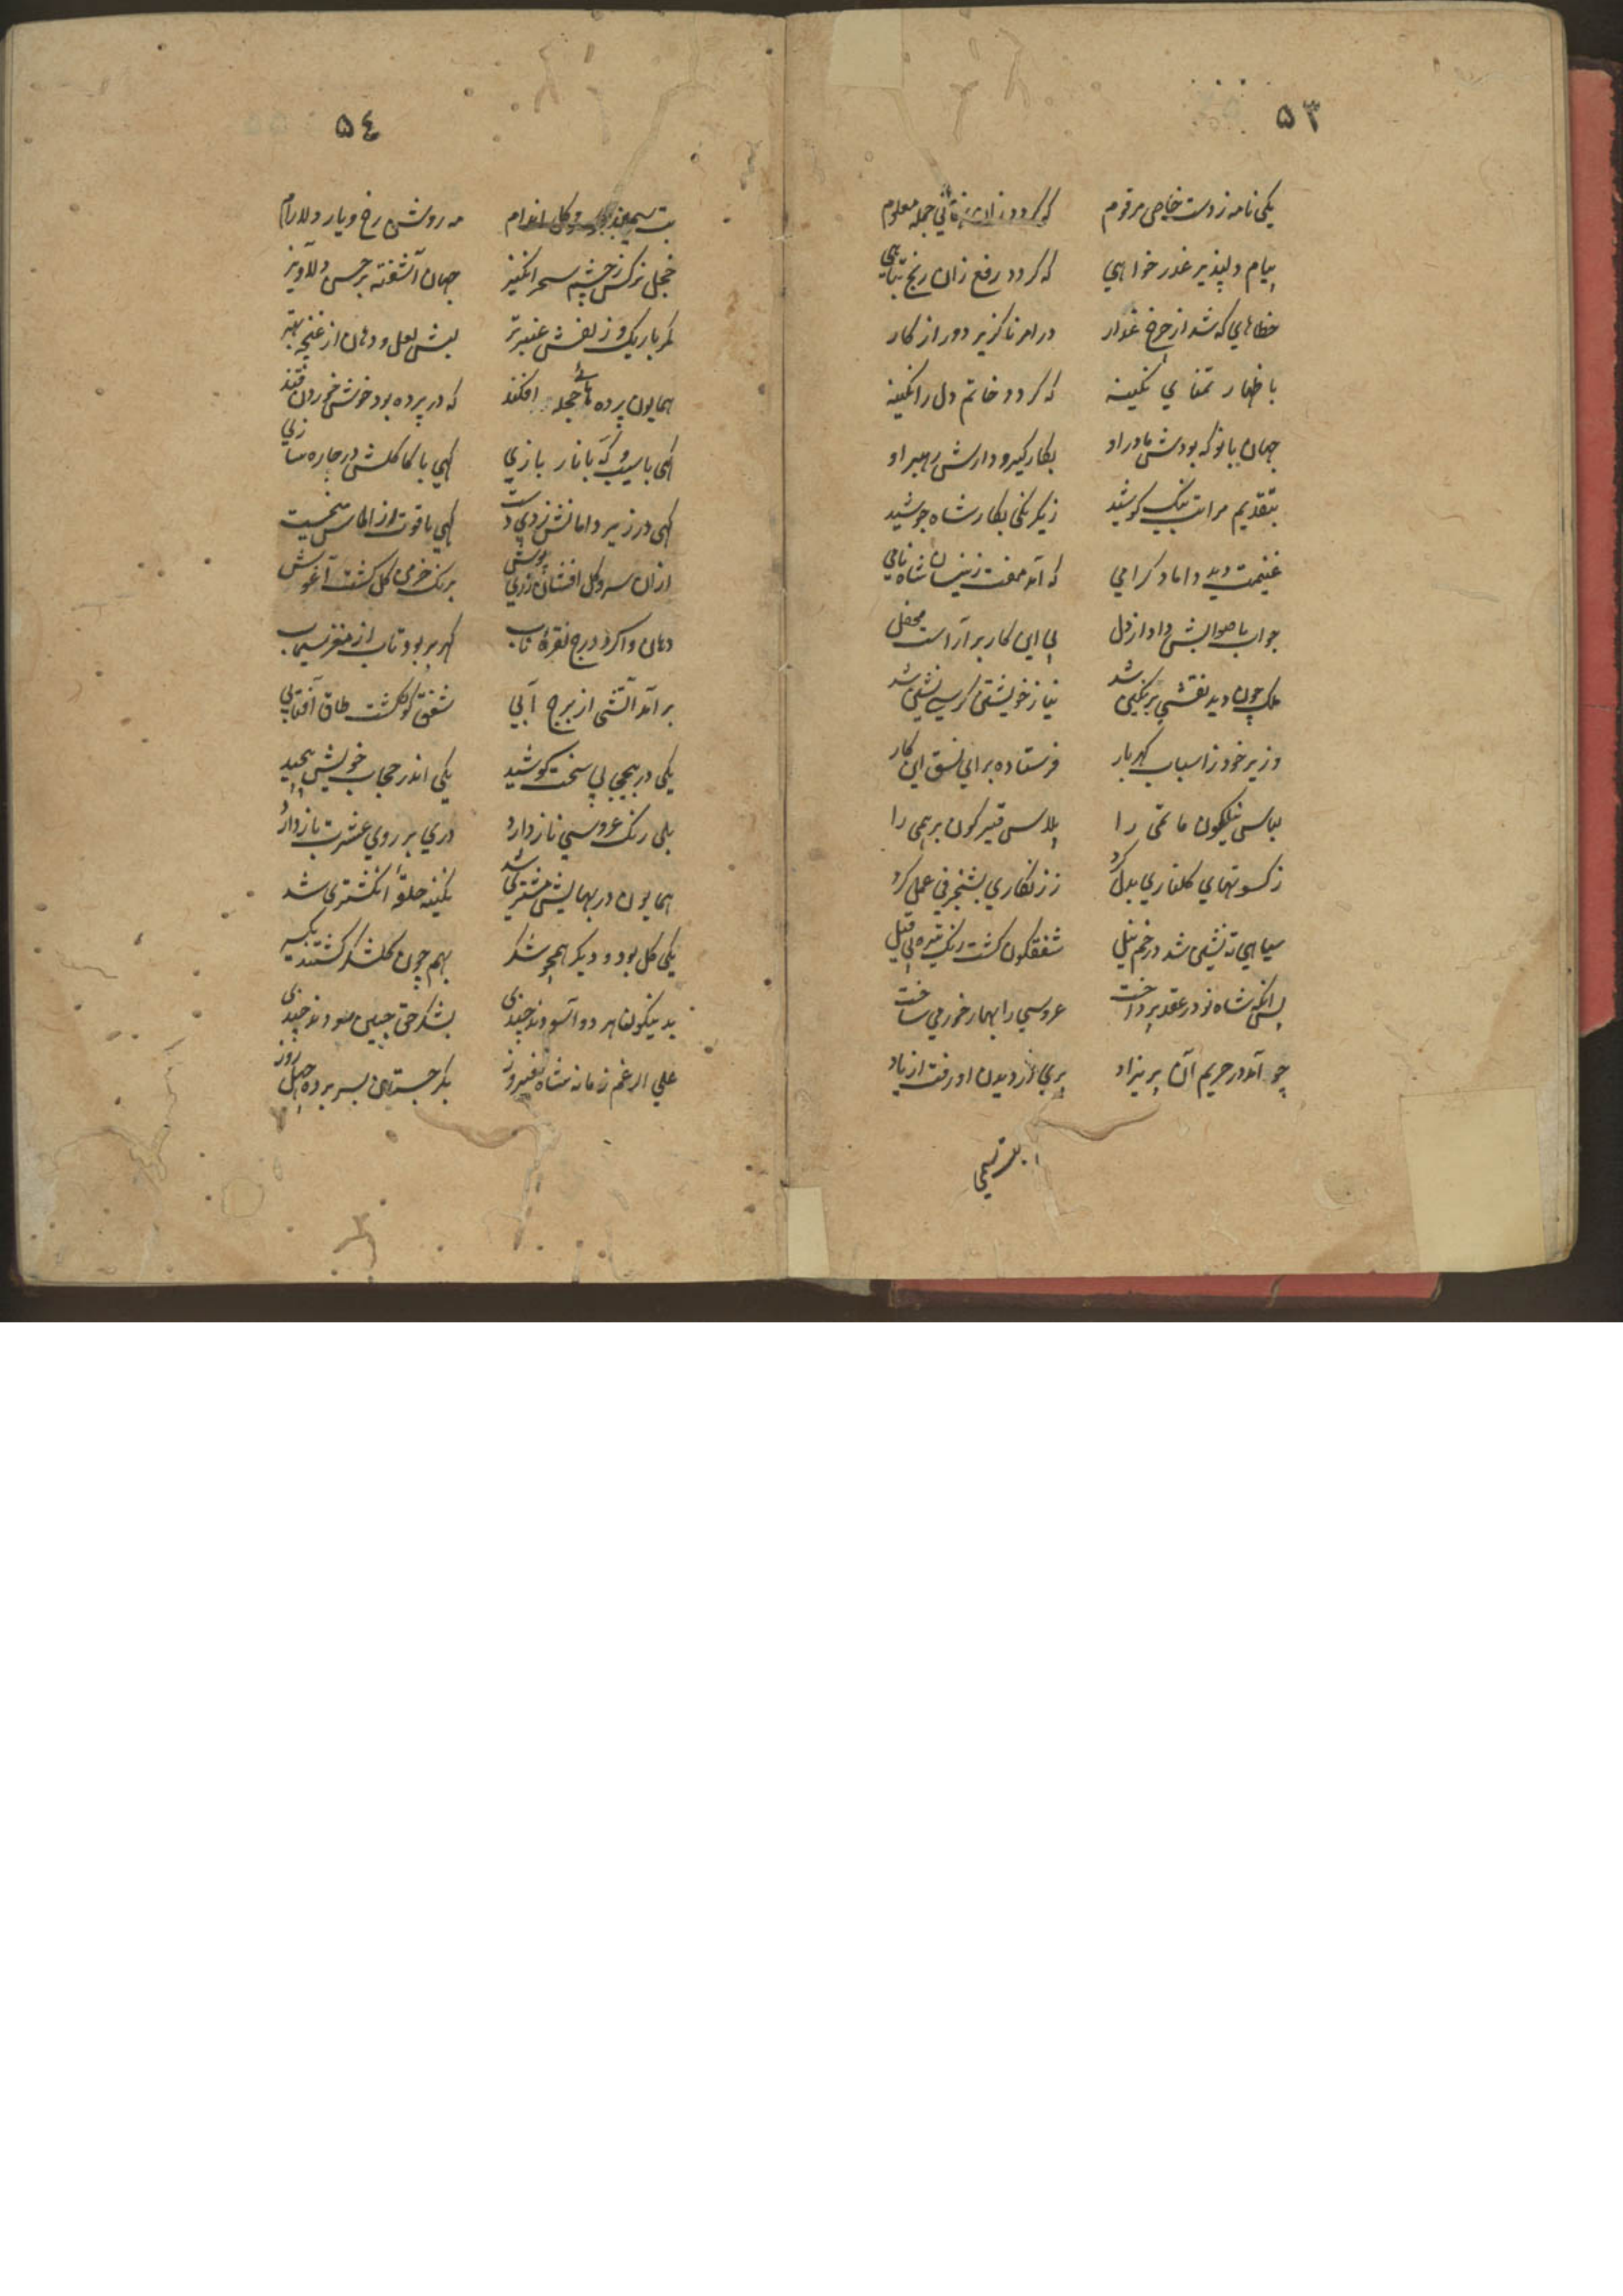 ۵۳
یکی نامه ز دست خاص مرقوم که کردد زان جمله معلوم
پیام دلپذیر عذر خواهي که کردد رفع زان رنج تباهي
خطاهاي که شد از چرخ غدار در امر ناکزیر دور از کار
باظهار تمناي نکینه که کردد خاتم دل را نکینه
جهان بانو که بودش مادر او بکار کیرو دارش رهبر او
بتقدیم مراتب نیک کوشید ز یکرنکی بکار شاه جوشید
غنیمت دید داماد کرامي که آمد مفت زینسان شاه نامي
جواب با صوابش داد از دل پی این کار برآراست محفل
ملک چون دید نقشي بر نکین شد نیاز خویشتن کرسي نشین شد
وزیر خود ز اسباب کهربار فرستاده براي نسق این کار
لباس نیلکون ماتمی را پلاس قیرکون برهمی را
ز کسوتهاي کلناري بدل کرد ز زنکاري بشنجرفي عمل کرد
سیاهي ته نشین شد در خم نیل شفقکون کشت رنک تیره پی قیل
پس انکه شاه نو در عقد پرداخت عروسي را بهار خورمي ساخت
چو آمد در حریم آن پریزاد پري از دیدن او رفت از یاد
بت سیمی
۵٤
بت سیمین و کل اندام مه روشن رخ و یار دلارام
خجل نرکس ز چشم سحر انکیز جهان آشفته بر حسن دلاویز
کمر باریک و زلفش عنبر تر لبش لعل و دهان از غنچه بهتر
همایون پرده هاي حجله افکند که در پرده بود خوش خوردن قند
کهی با سیب و که با نار بازي کهي با کاکلش در چاره سازي
کهی در زیر دامانش زدي دست کهي یاقوت از الماس مي خست
ازان سرو کل افشان زري پوش برنک خرمن کل کشت آغوش
دهان واکرد درج نقره ناب کهر بربود تاب از مغز سیماب
بر آمد آتشی از برج آبي شفق کو کشت طاق آفتابي
یکي در پیچي پي سخت کوشید یکي اندر حجاب خویش پیچید
بلي رنک عروسي ناز دارد دري بر روي عشرت باز دارد
همایون در بهایش مشتري شد نکینه حلقهٔ انکشتري شد
یکي کل بود و دیکر همچو شکر بهم چون کلشکر کشتند یکسر
به نیکو فال هر دو آسودند چندي بشکر حق جبین سودند چندي
علي الرغم زمانه شاه فیروز بکرجستان بسر برده چهل روز